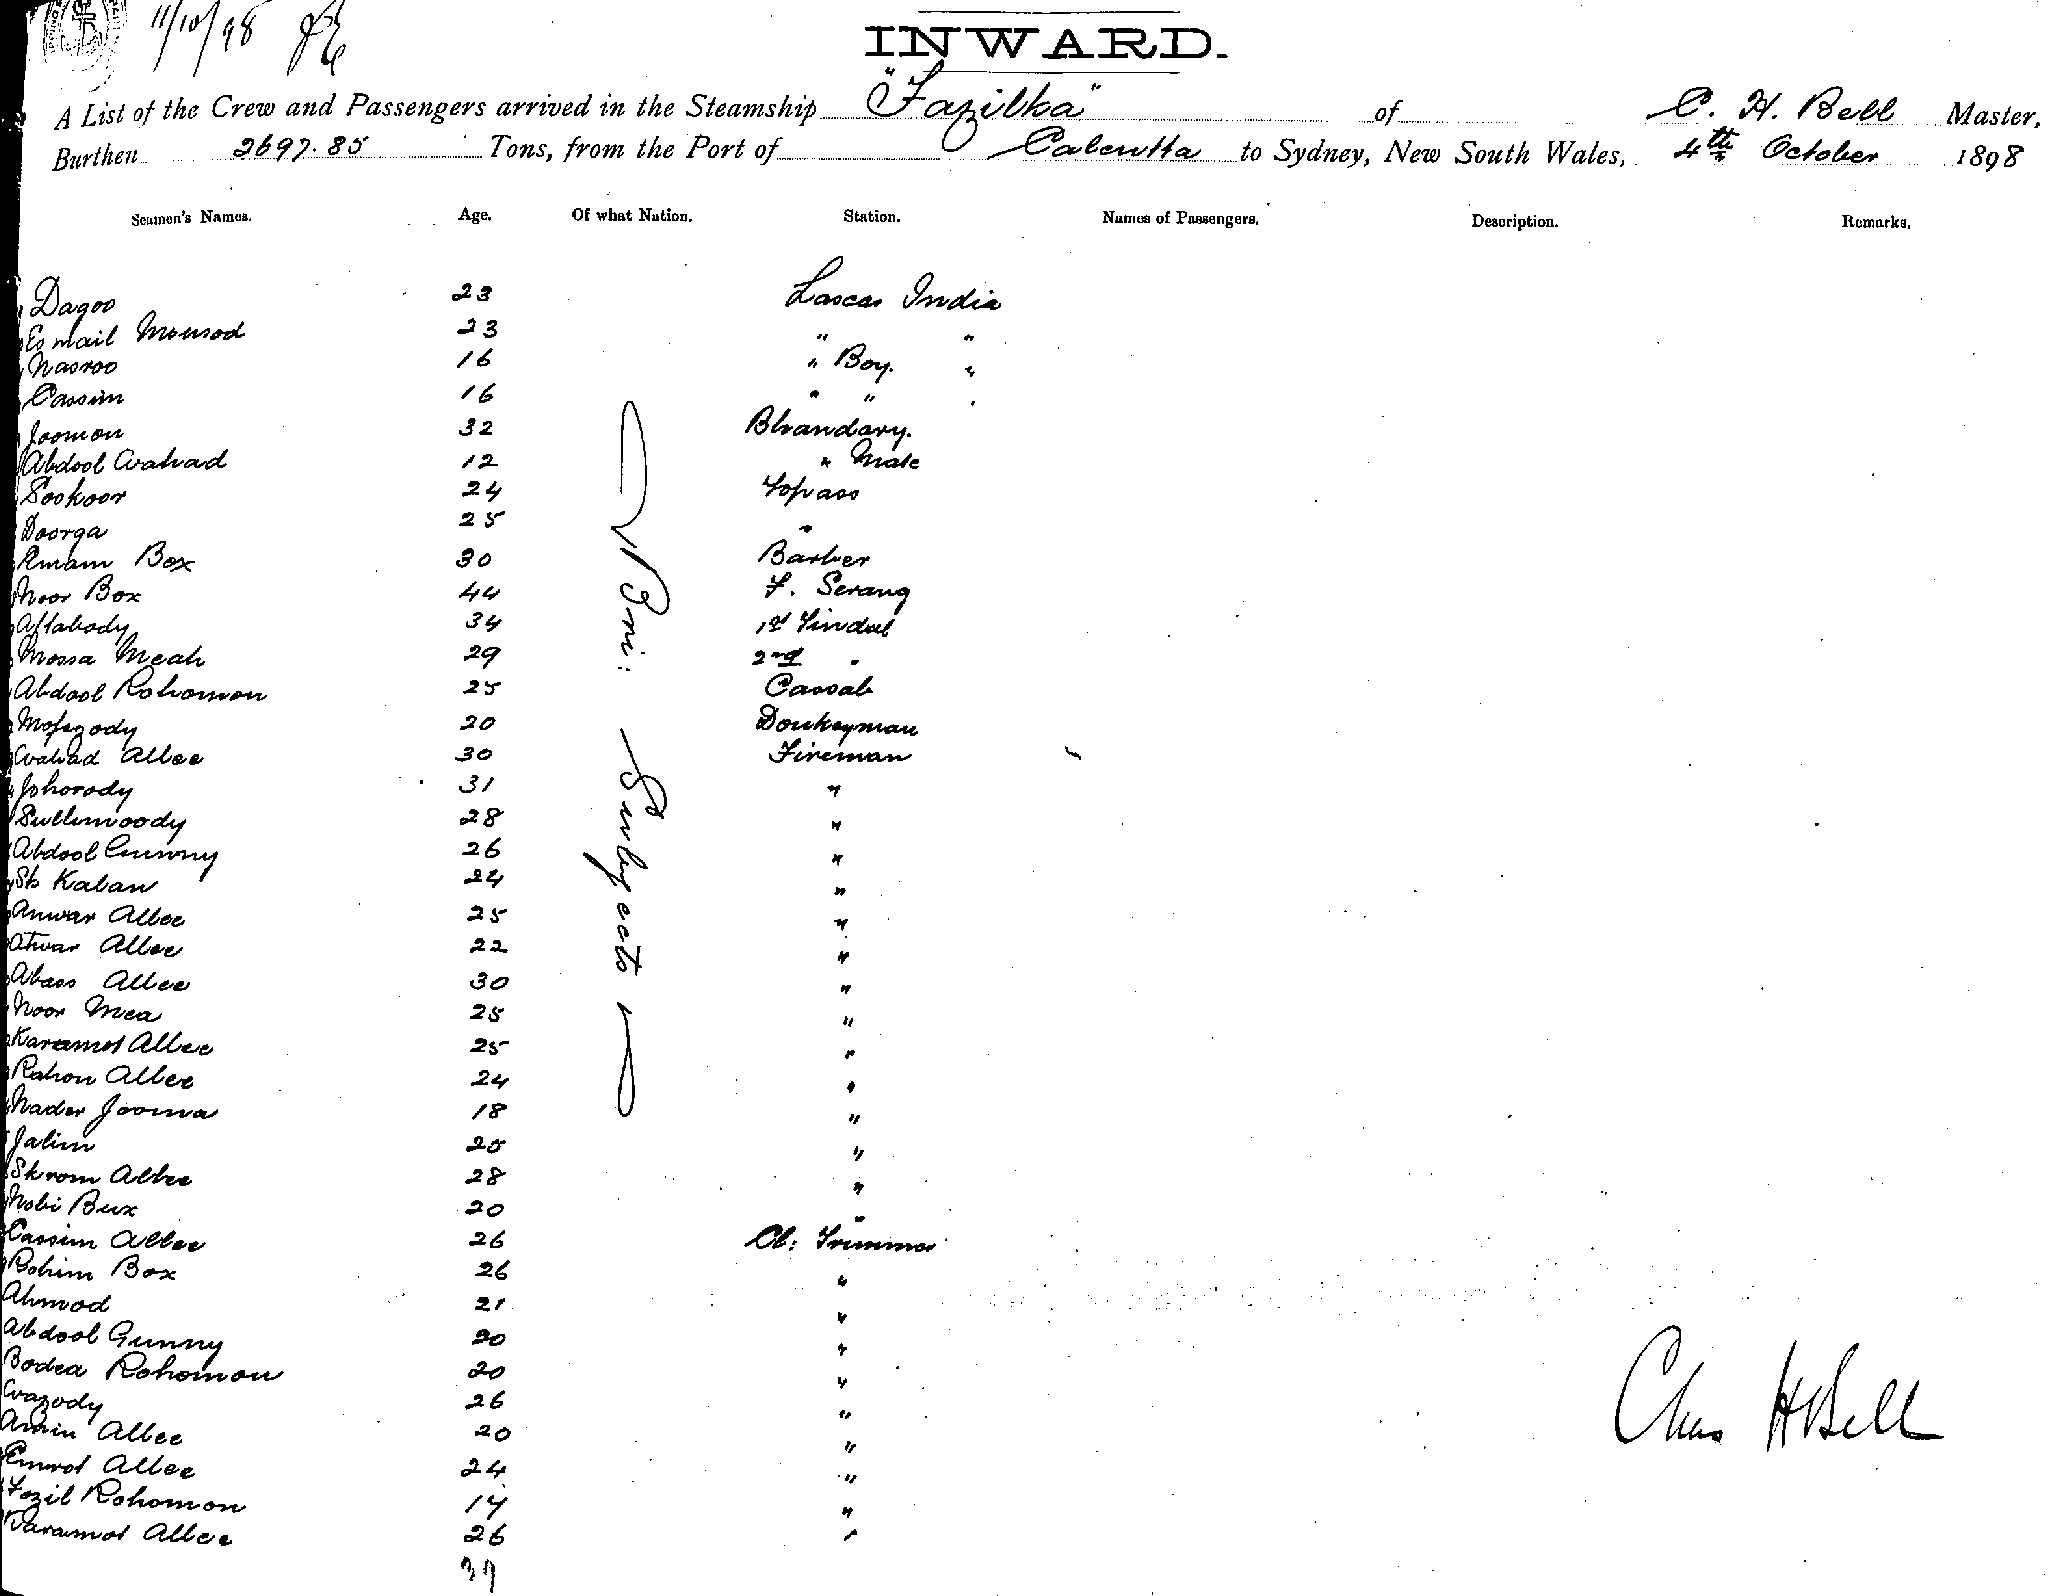 11/10/98
INWARD.
A List of the Crew and Passengers arrived in the Steamship "Fazilka" of C. H. Bell Master,
Burthen 2697.85 Tons, from the Port of Calcutta to Sydney, New South Wales, 4th October 1898
Seamen's Names. Age. Of what Nation. Station. Names of Passengers. Description. Remarks.
Dagoo 23 Lascar India
Esmail Mousod 23 " "
Nasroo 16 " Boy. "
Cassim 16 " " "
Joomon 32 Bhandary.
Abdool Wahad 12 " Mate
Sookoor 24 Topass
Doorga 25 "
Emam Box 30 Barber
Noor Box 44 F. Serang
Aftabody 34 1st Tindal
Mossa Meah 29 2nd "
Abdool Rohomon 25 Cassab
Mofezody 20 Donkeyman
Wahad Allee 30 Fireman
Johorody 31 "
Sullimoody 28 "
Abdool Gunny 26 "
Sk Kalan 24 "
Anwar Allee 25 "
Atwar Allee 22 "
Abass Allee 30 "
Noor Mea 25 "
Karamot Allee 25 "
Rahon Allee 24 "
Nader Jooma 18 "
Jalim 20 "
Skrom Allee 28 "
Nobi Bux 20 "
Cassim Allee 26 Cl: Trimmer
Rohim Box 26 "
Ahmod 21 "
Abdool Gunny 20 "
Bodea Rohomon 20 "
Wazody 26 "
Amin Allee 20 "
Emrot Allee 24 "
Fozil Rohomon 17 "
Karamot Allee 26 "
39
Bri: Subjects
Chas H Bell